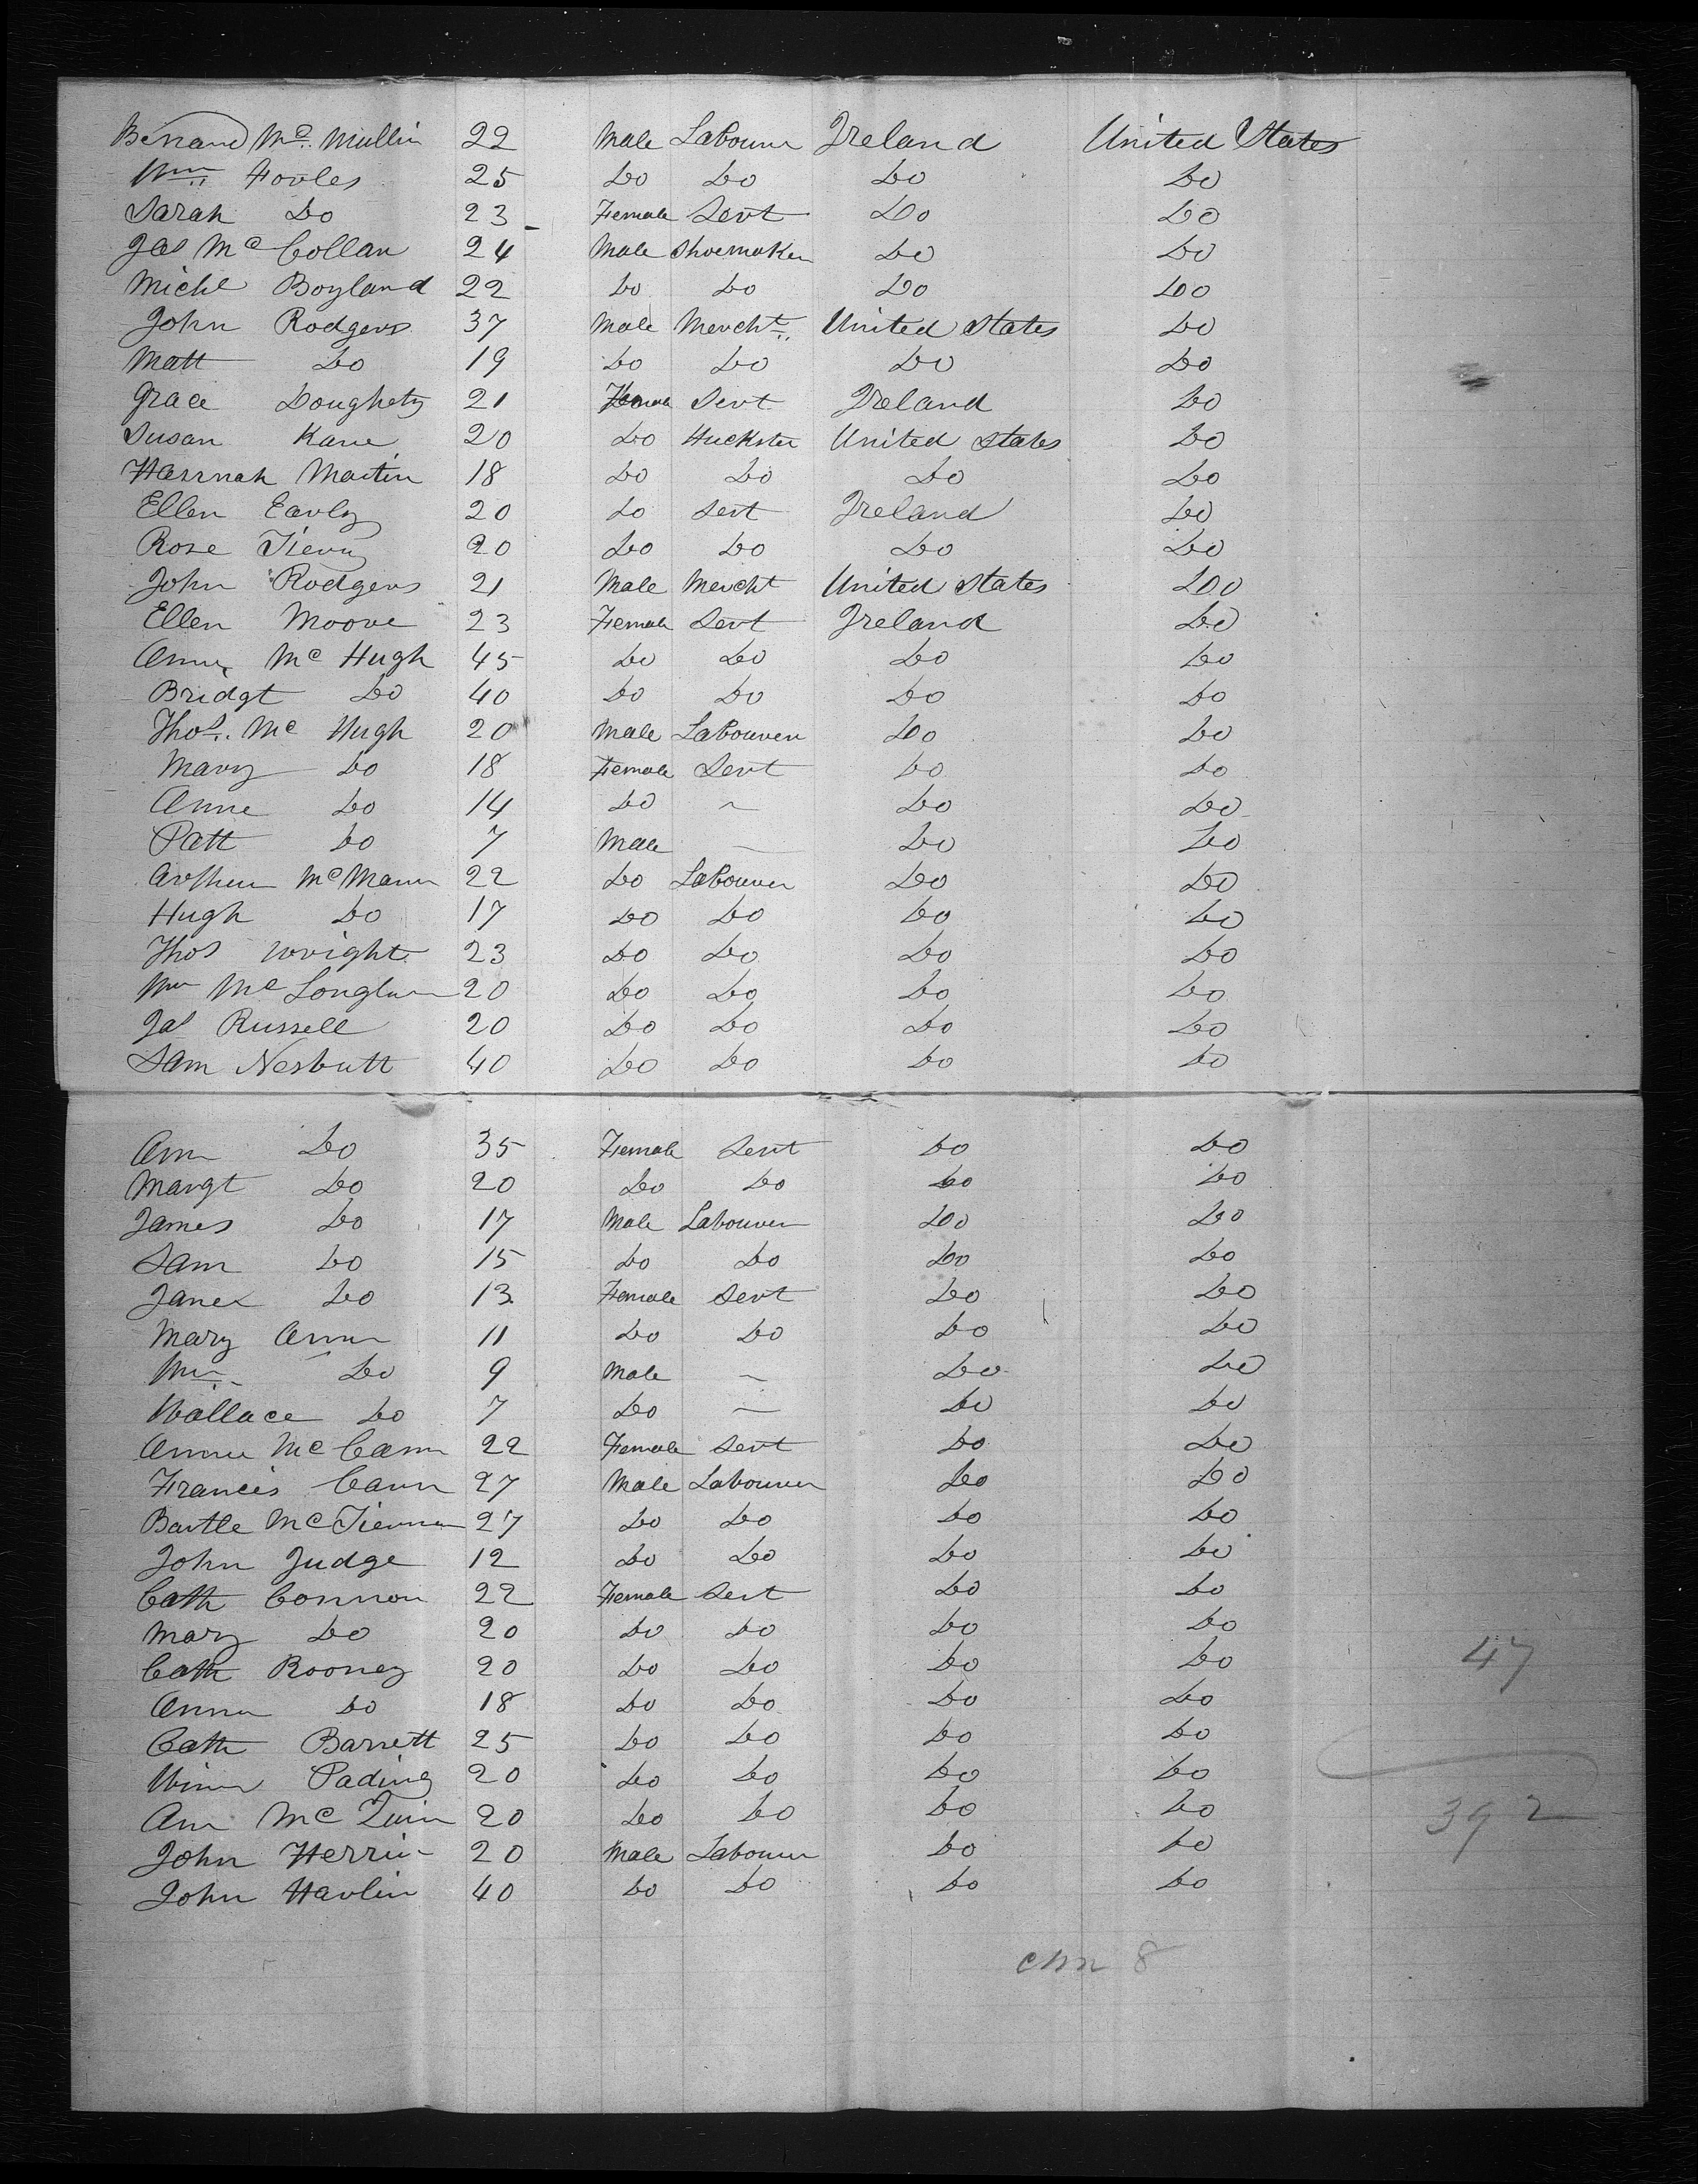 Bernard Mc. Mullin 22 Male Labourer Ireland United States
Wm Fowles 25 Do Do Do Do
Sarah Do 23 Female Servt Do Do
Jas Mc Collan 24 Male Shoemaker Do Do
Michl Boyland 22 Do Do Do Do
John Rodgers 37 Male Mercht United States Do
Matt Do 19 Do Do Do Do
Grace Doughety 21 Female Servt Ireland Do
Susan Kane 20 Do Huckster United States Do
Hannah Martin 18 Do Do Do Do
Ellen Early 20 Do Sert Ireland Do
Rose Tierny 20 Do Do Do Do
John Rodgers 21 Male Mercht United States Do
Ellen Moore 23 Female Servt Ireland Do
Anne Mc Hugh 45 Do Do Do Do
Bridgt Do 40 Do Do Do Do
Thos. Mc Hugh 20 Male Labourer Do Do
Mary Do 18 Female Servt Do Do
Anne Do 14 Do ~ Do Do
Patt Do 7 Male — Do Do
Arthur McMann 22 Do Labourer Do Do
Hugh Do 17 Do Do Do Do
Thos Wright 23 Do Do Do Do
Wm Mc 20 Do Do Do Do
Jas Russell 20 Do Do Do Do
Sam Nesbutt 40 Do Do Do Do
Ann Do 35 Female Servt Do Do
Margt Do 20 Do Do Do Do
James Do 17 Male Labourer Do Do
Sam Do 15 Do Do Do Do
Jane Do 13 Female Servt Do Do
Mary Ann 11 Do Do Do Do
Wm Do 9 Male ~ Do Do
Wallace Do 7 Do ~ Do Do
Anne Mc Cann 22 Female Servt Do Do
Francis Cann 27 Male Labourer Do Do
Bartle McTiernan 27 Do Do Do Do
John Judge 12 Do Do Do Do
Cath Connor 22 Female Servt Do Do
Mary Do 20 Do Do Do Do
Cath Rooney 20 Do Do Do Do 47
Anne Do 18 Do Do Do Do
Cath Barrett 25 Do Do Do Do
Pading 20 Do Do Do Do
Ann Mc Quin 20 Do Do Do Do 392
John Herrin 20 Male Labourer Do Do
John Havlin 40 Do Do Do Do
chn 8